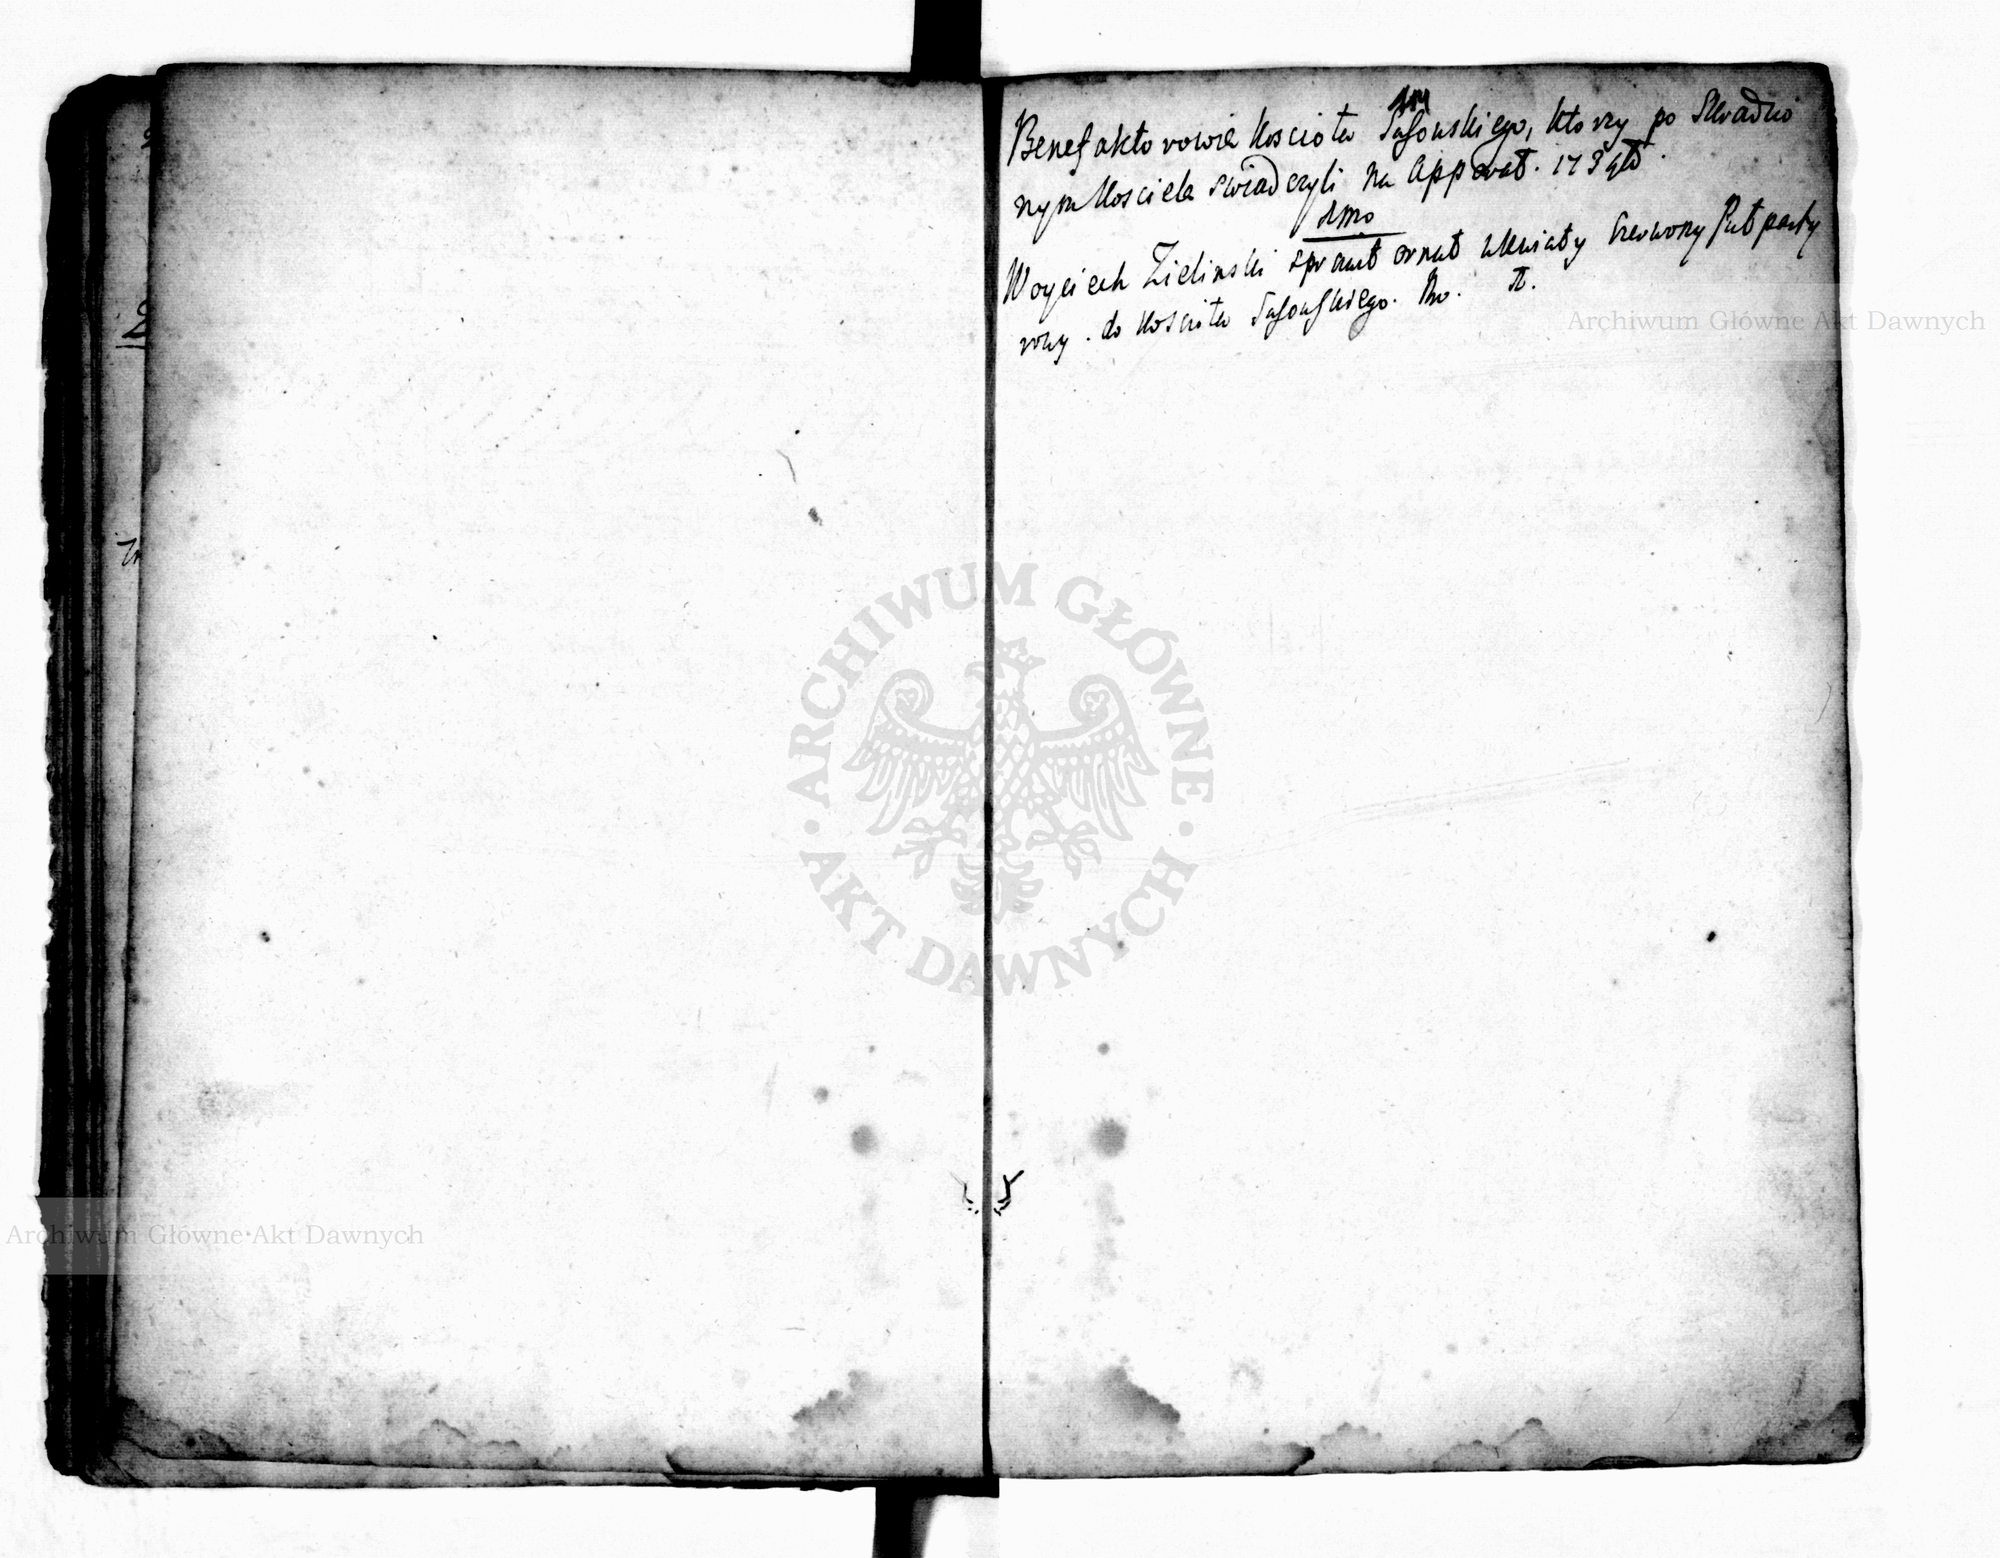 Benefaktorowie koscioła Sasowskiego, ktorzy po Skradzio
nym kosciele swiadczyli na Apparat. 173
1mo
Woyciech Zielinski sprawił ornat w kwiaty czerwony
do koscioła Sasowskiego.
Archiwum Główne Akt Dawnych
ARCHIWUM GŁÓWNE · AKT DAWNYCH ·
Archiwum Główne Akt Dawnych